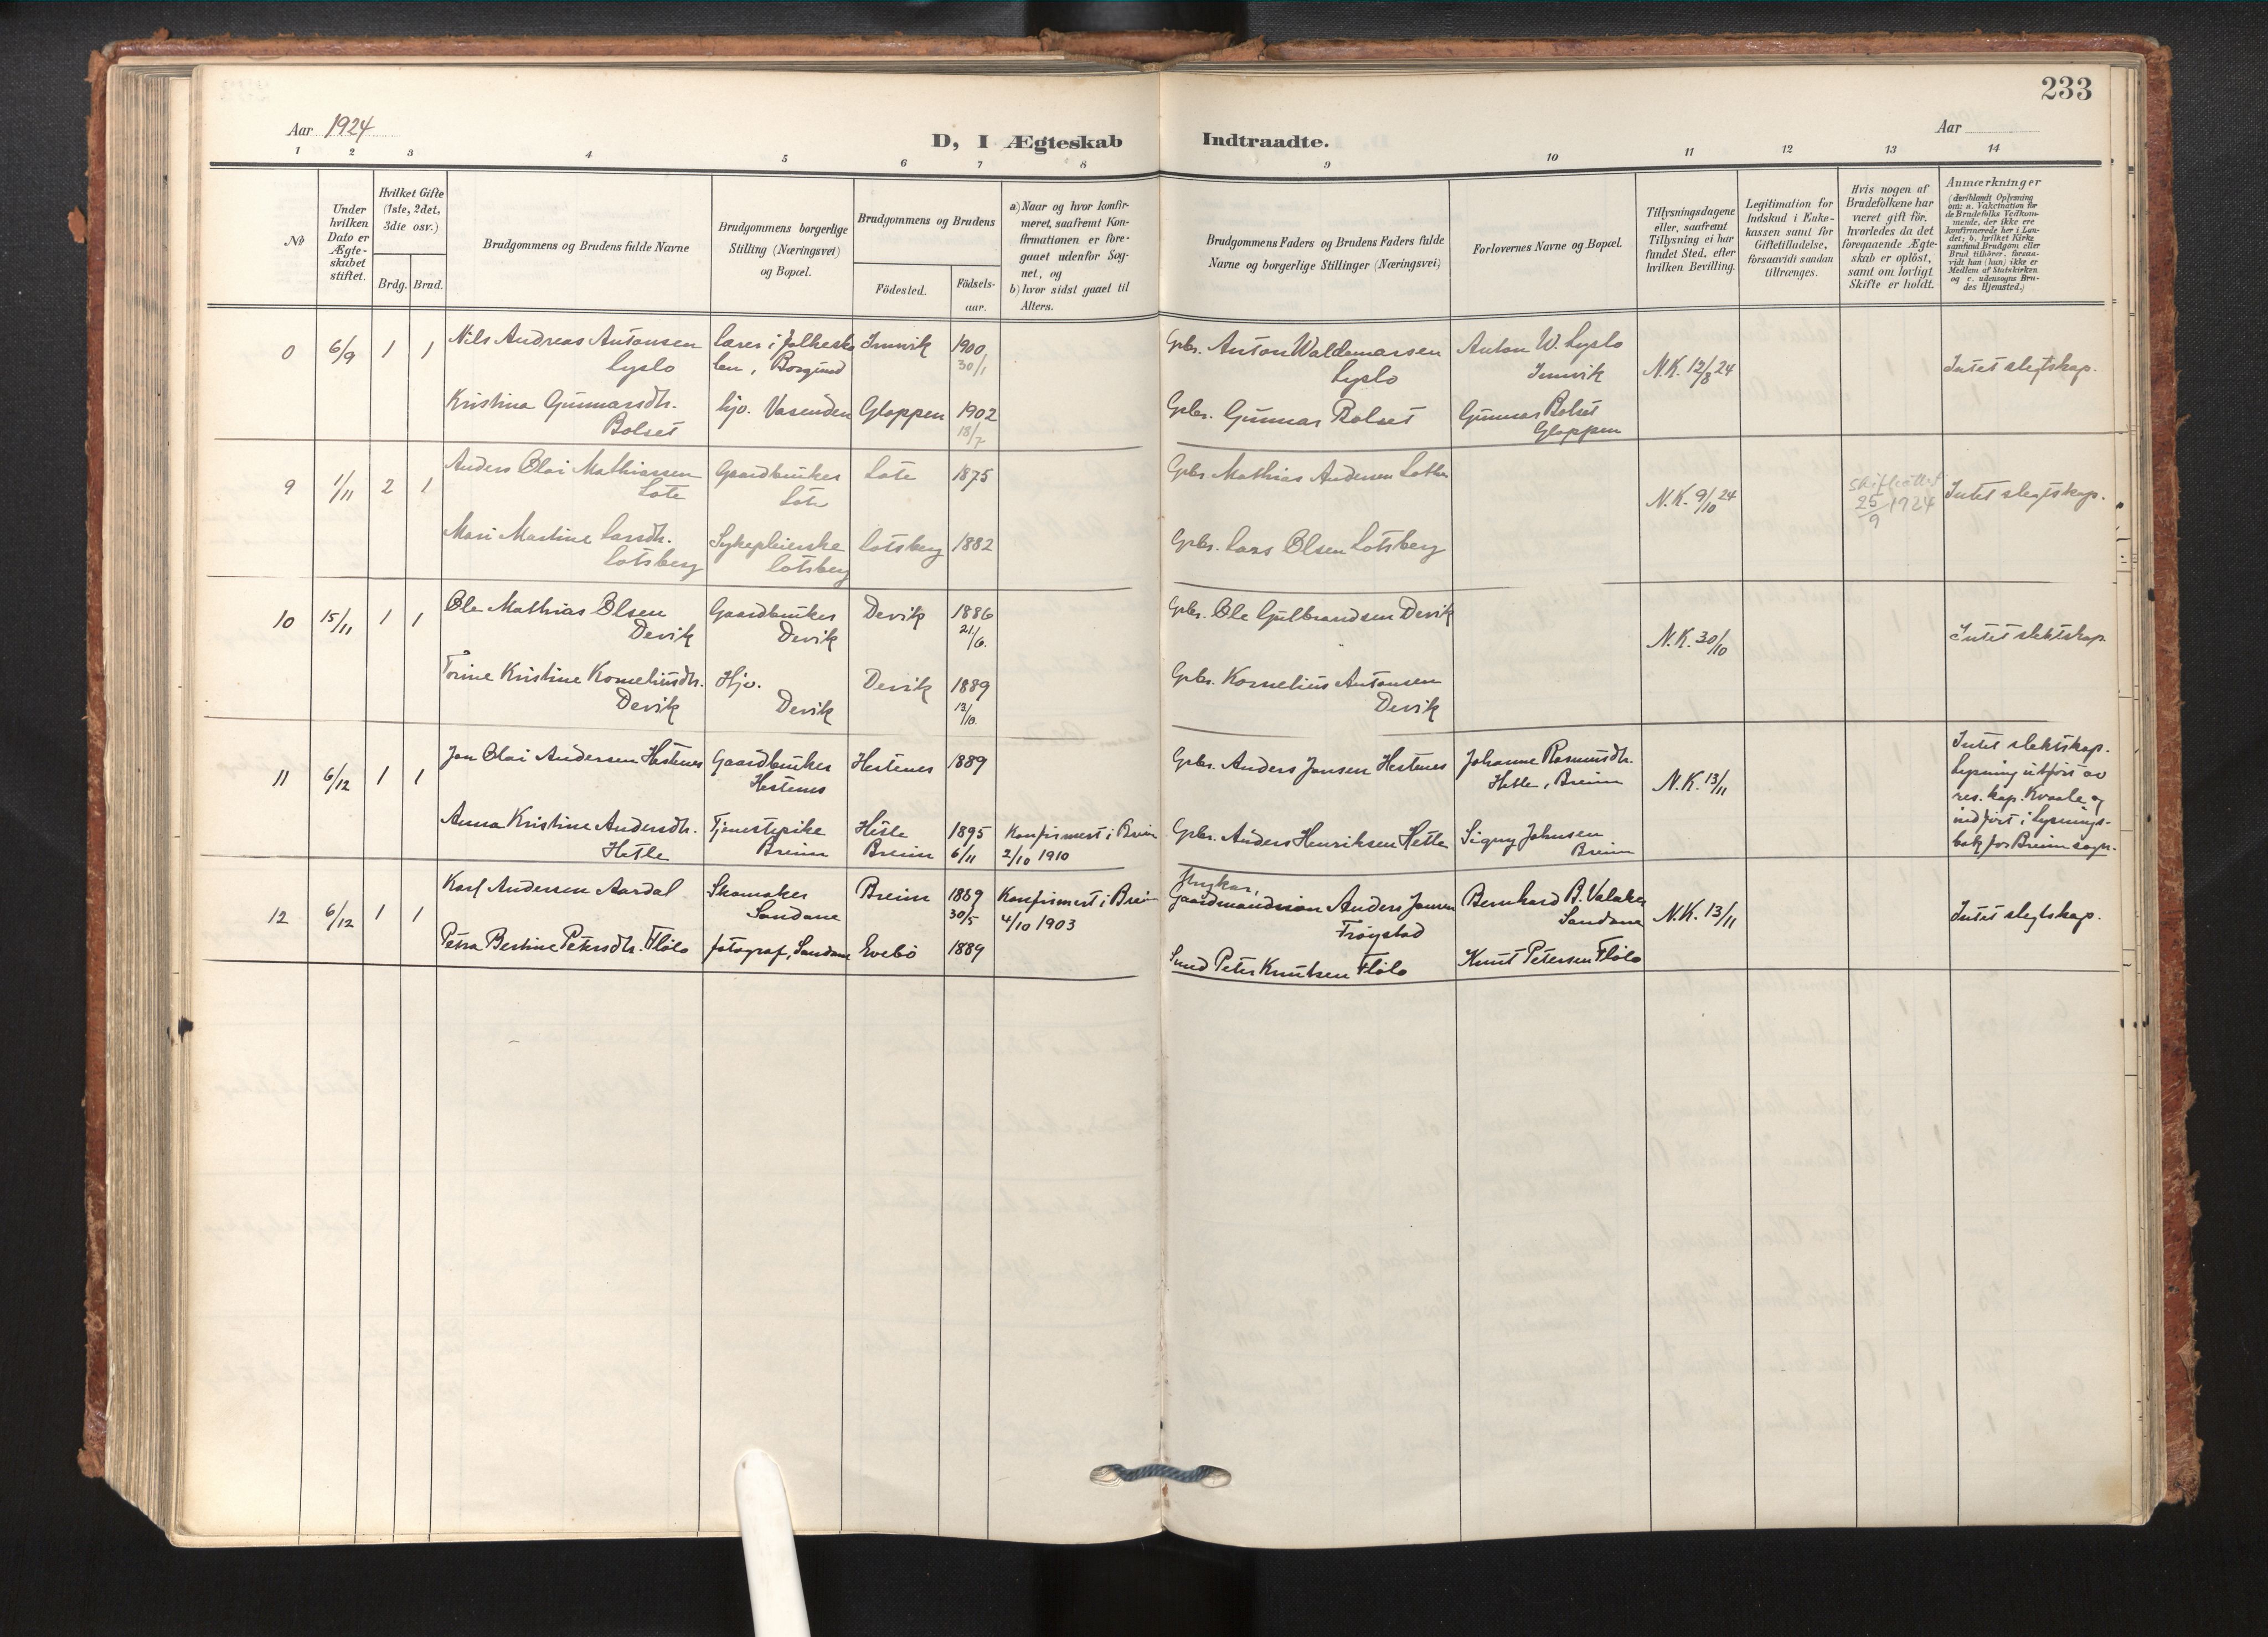 233
Aar 1924
Aar
D, I Ægteskab Indtraadte.
1 2 3 4 5 6 7 8 9 10 11 12 13 14
No
Under hvilken Dato er Ægte-skabet stiftet.
Hvilket Gifte (1ste, 2det, 3die osv.)
Brdg. Brud.
Brudgommens og Brudens fulde Navne
Brudgommens borgerlige Stilling (Næringsvei) og Bopæl.
Brudgommens og Brudens
Födested.
Födsels-aar.
a) Naar og hvor konfir-meret, saafremt Kon-firmationen er fore-gaaet udenfor Sog-net, og
b) hvor sidst gaaet til Alters.
Brudgommens Faders og Brudens Faders fulde Navne og borgerlige Stillinger (Næringsvei)
Forlovernes Navne og Bopæl.
Tillysningsdagene eller, saafremt Tillysning ei har fundet Sted, efter hvilken Bevilling.
Legitimation for Indskud i Enke-kassen samt for Giftetilladelse, forsaavidt saadan tiltrænges.
Hvis nogen af Brudefolkene har været gift för, hvorledes da det foregaaende Ægte-skab er oplöst, samt om lovligt Skifte er holdt.
Anmærkninger
(deriblandt Oplysning om: a. Vakcination for de Brudefolks Vedkom-mende, der ikke ere konfirmerede her i Lan-det; b. hvilket Kirke-samfund Brudgom eller Brud tilhörer, forsaa-vidt han (hun) ikke er Medlem af Statskirken og c. udensogns Bru-des Hjemsted.)
0 6/9 1 1 Nils Andreas Antonsen Lærer i folkesko Innvik 1900 Gbr. Anton Waldemarsen Anton W. Lyslo N.K. 12/8 24 Intet slegtskap.
Lyslo len, Borgund 30/1 Lyslo Innvik
Kristina Gunnarsdtr. hjv. Vasenden Gloppen 1902 Gbr. Gunnar Bolset Gunnar Bolset
Bolset 18/7 Gloppen
9 1/11 2 1 Anders Olai Mathiassen Gaardbruker Lote 1875 Gbr. Mathias Andersen Lothe N.K. 9/10 24 25/9 1924 Intet slegtskap.
Lote Lote
Mari Martine Larsdtr. Sykepleierske Lotsberg 1882 Gbr. Lars Olsen Lotsberg
Lotsberg Lotsberg
10 15/11 1 1 Ole Mathias Olsen Gaardbruker Devik 1886 Gbr. Ole Gulbrandsen Devik N.K. 30/10 Intet slektskap.
Devik Devik 21/6.
Torine Kristine Korneliusdtr. Hjv. Devik 1889 Gbr. Kornelius Antonsen
Devik Devik 13/10. Devik
11 6/12 1 1 Jon Olai Andersen Hestenes Gaardbruker Hestenes 1889 Gbr. Anders Jonsen Hestenes Johanne Rasmusdtr. N.K. 13/11 Intet slektskap.
Hestenes Hetle, Breim Lysning utført av
res. kap. Kvaale og
Anna Kristine Andersdtr. Tjenestepike Hetle 1895 Konfirmert i Breim Gbr. Anders Henriksen Hetle Signy Johnsen indført i Lysnings-
Hetle Breim Breim 6/11 2/10 1910 Breim bok for Breim sogn.
12 6/12 1 1 Karl Andersen Aardal Skomaker Breim 1889 Konfirmert i Breim Gaardmandssøn Anders Jonsen Bernhard B. Valaker N.K. 13/11 Intet slegtskap.
Sandane 30/5 4/10 1903 Frøystad Sandane
Petra Bertine Petersdtr. Fløtlo fotograf, Sandane Evebø 1889 Peter Knutsen Fløtlo Knut Petersen Fløtlo